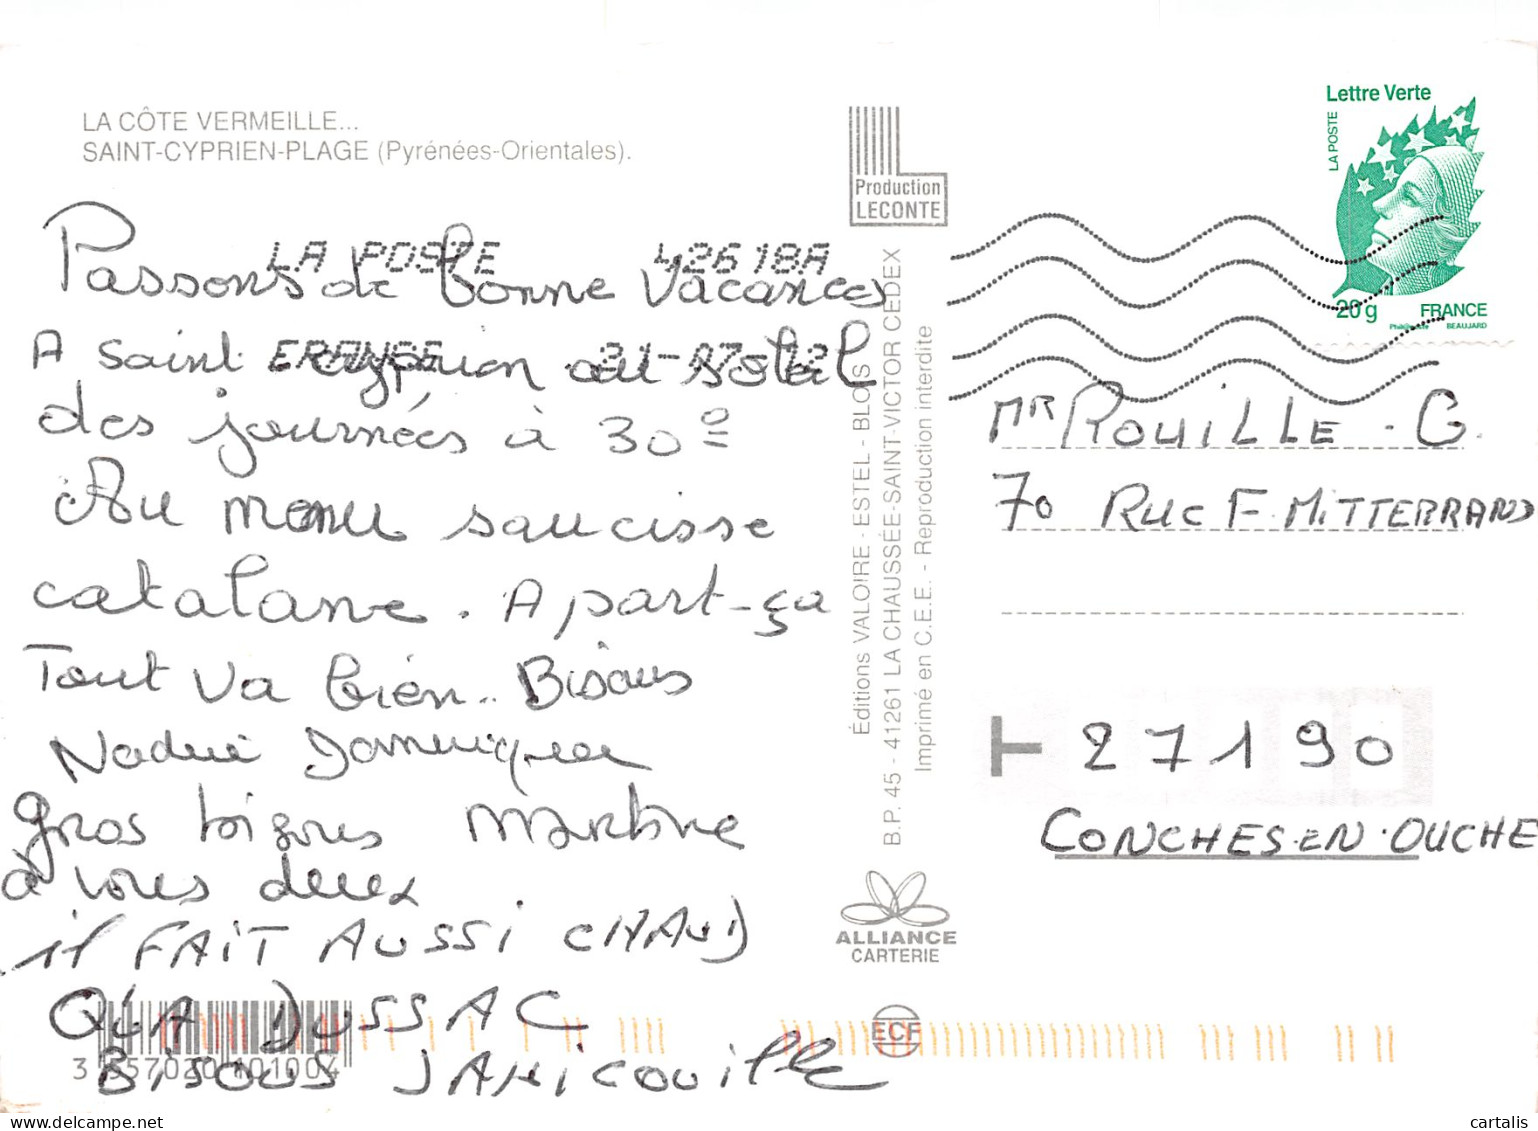 LA CÔTE VERMEILLE...
SAINT-CYPRIEN-PLAGE (Pyrénées-Orientales).
LA POSTE 42618A
FRANCE 21-07-12
Passons de bonne vacances
A saint cyprien au soleil
des journées à 30°
Au menu saucisse
catalane. A part-ça
Tout va bien.. Bisous
Nadine Dominique
gros bisous Martine
à vous deux
il FAIT AUSSI CHAUD
QU'A DUSSAC
BISOUS
3 57020 101004
Production
LECONTE
Éditions VALOIRE - ESTEL - BLOIS
B.P. 45 - 41261 LA CHAUSSÉE-SAINT-VICTOR CEDEX
Imprimé en C.E.E. - Reproduction interdite
ALLIANCE
CARTERIE
ECF
Lettre Verte
LA POSTE
20g FRANCE
BEAUJARD
Mr ROUILLE . G.
70 RUE F. MITTERRAND
27190
CONCHES.EN.OUCHE
cartalis
delcampe.net